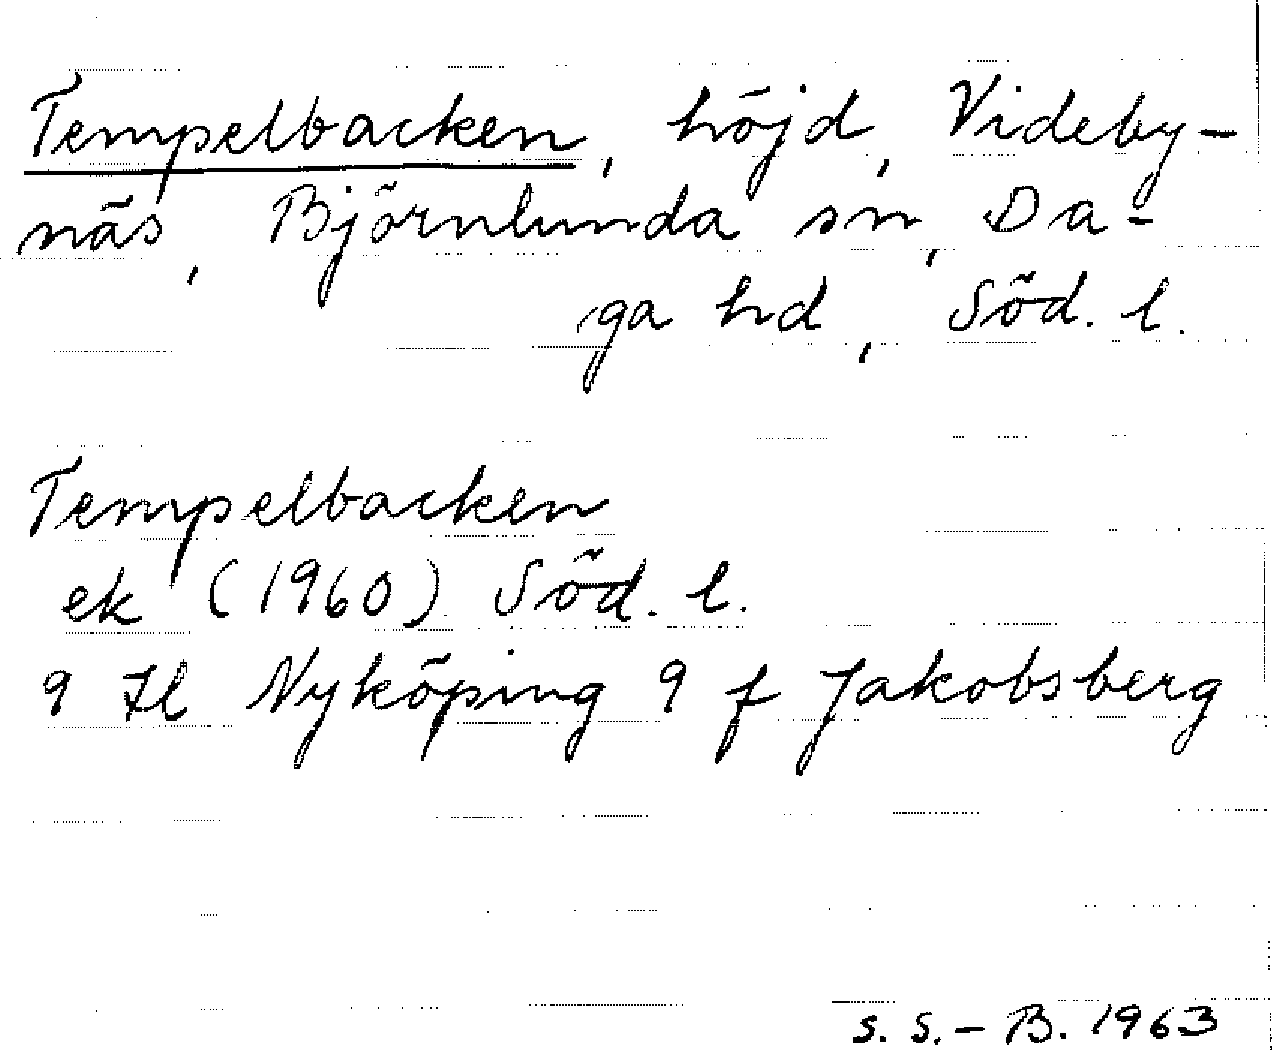 Tempelbacken, höjd, Videby-
näs, Björnlunda sn, Da-
ga hd, Söd. l.
Tempelbacken
ek (1960) Söd. l.
9 Nyköping 9 f Jakobsberg
S. S. - B. 1963